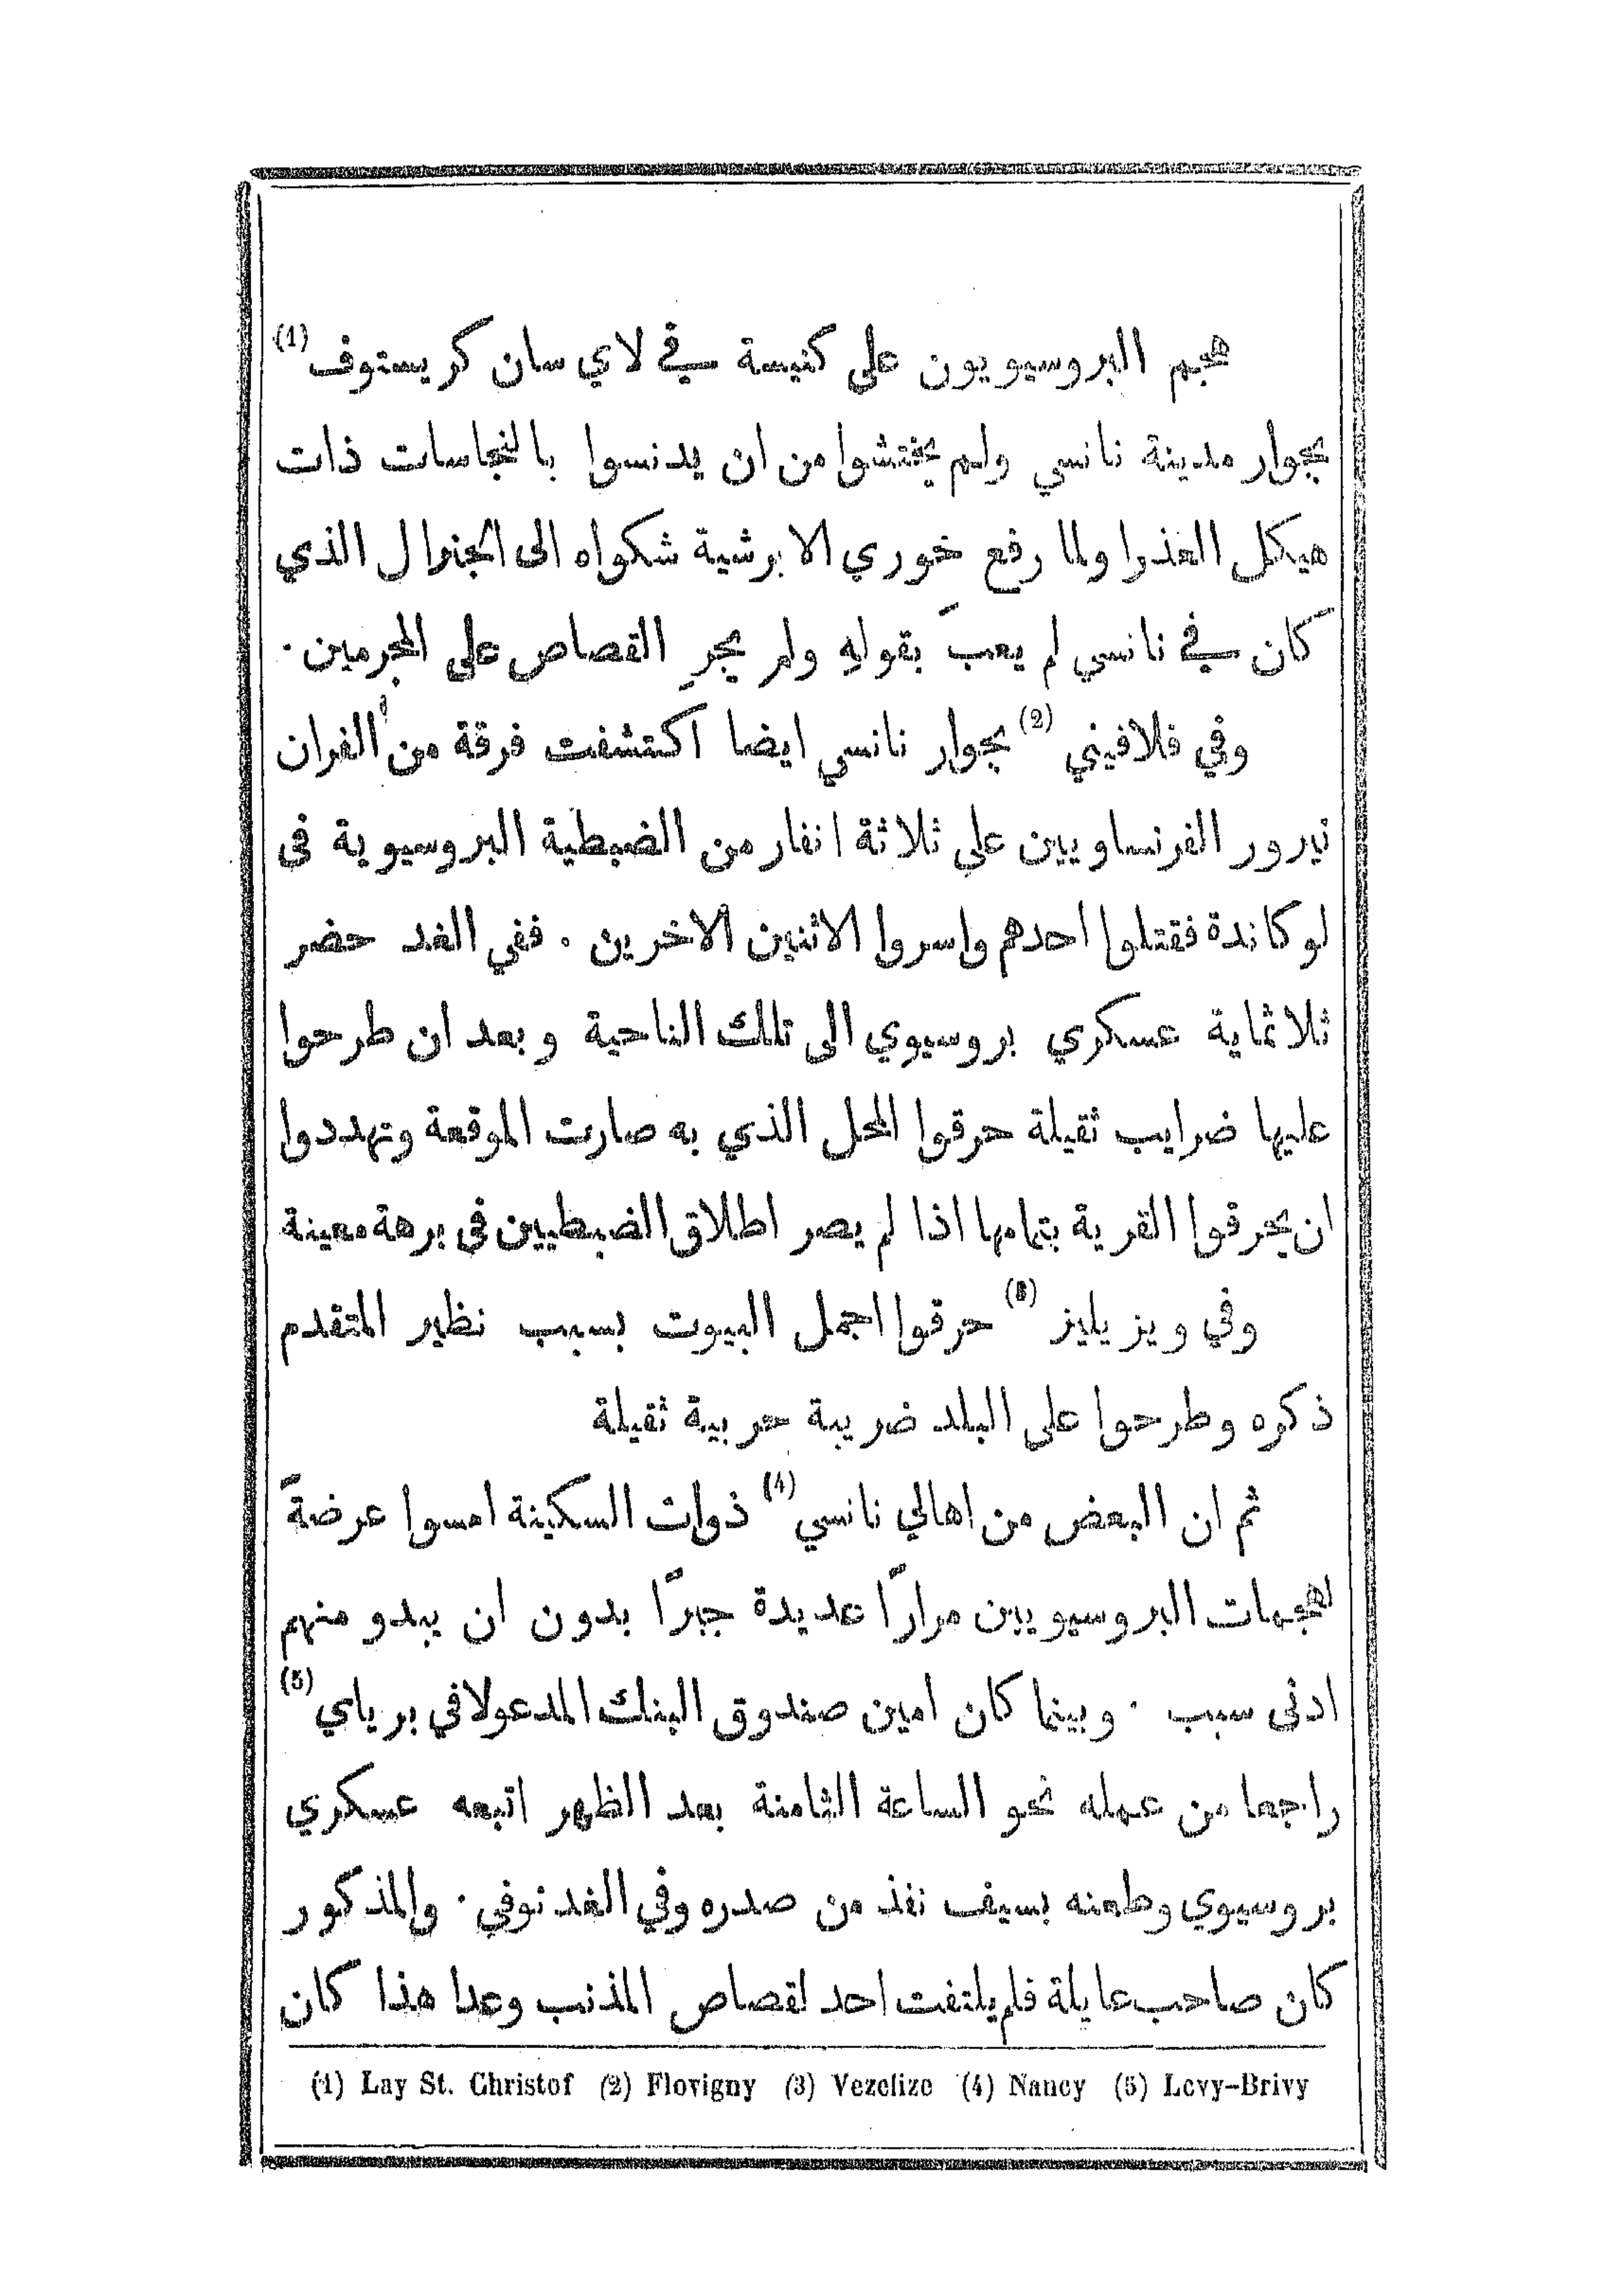 هجم البروسيويون على كنيسة في لاي سان كريستوف (1)
بجوار مدينة نانسي ولم يختشوا من ان يدنسوا بالنجاسات ذات
هيكل العذرا ولما رفع خوري الابرشية شكواه الى الجنرال الذي
كان في نانسي لم يعبَ بقولهِ ولم يجرِ القصاص على المجرمين .
وفي فلافيني (2) بجوار نانسي ايضا اكتشفت فرقة من الفران
تيرور الفرنساويين على ثلاثة انفار من الضبطية البروسيوية في
لوكاندة فقتلوا احدهم واسروا الاثنين الاخرين . ففي الغد حضر
ثلاثماية عسكري بروسيوي الى تلك الناحية وبعد ان طرحوا
عليها ضرايب ثقيلة حرقوا المحل الذي به صارت الموقعة وتهددوا
ان يحرقوا القرية بتمامها اذا لم يصر اطلاق الضبطيين في برهة معينة
وفي ويزيليز (3) حرقوا اجمل البيوت بسبب نظير المتقدم
ذكره وطرحوا على البلد ضريبة حربية ثقيلة
ثم ان البعض من اهالي نانسي (4) ذوات السكينة امسوا عرضةً
لهجمات البروسيويين مرارًا عديدة جبرًا بدون ان يبدو منهم
ادنى سبب . وبينما كان امين صندوق البنك المدعو لافي برياي (5)
راجعا من عمله نحو الساعة الثامنة بعد الظهر اتبعه عسكري
بروسيوي وطعنه بسيف نفذ من صدره وفي الغد توفي . والمذكور
كان صاحب عايلة فلم يلتفت احد لقصاص المذنب وعدا هذا كان
(1) Lay St. Christof (2) Flovigny (3) Vezelize (4) Nancy (5) Levy-Brivy